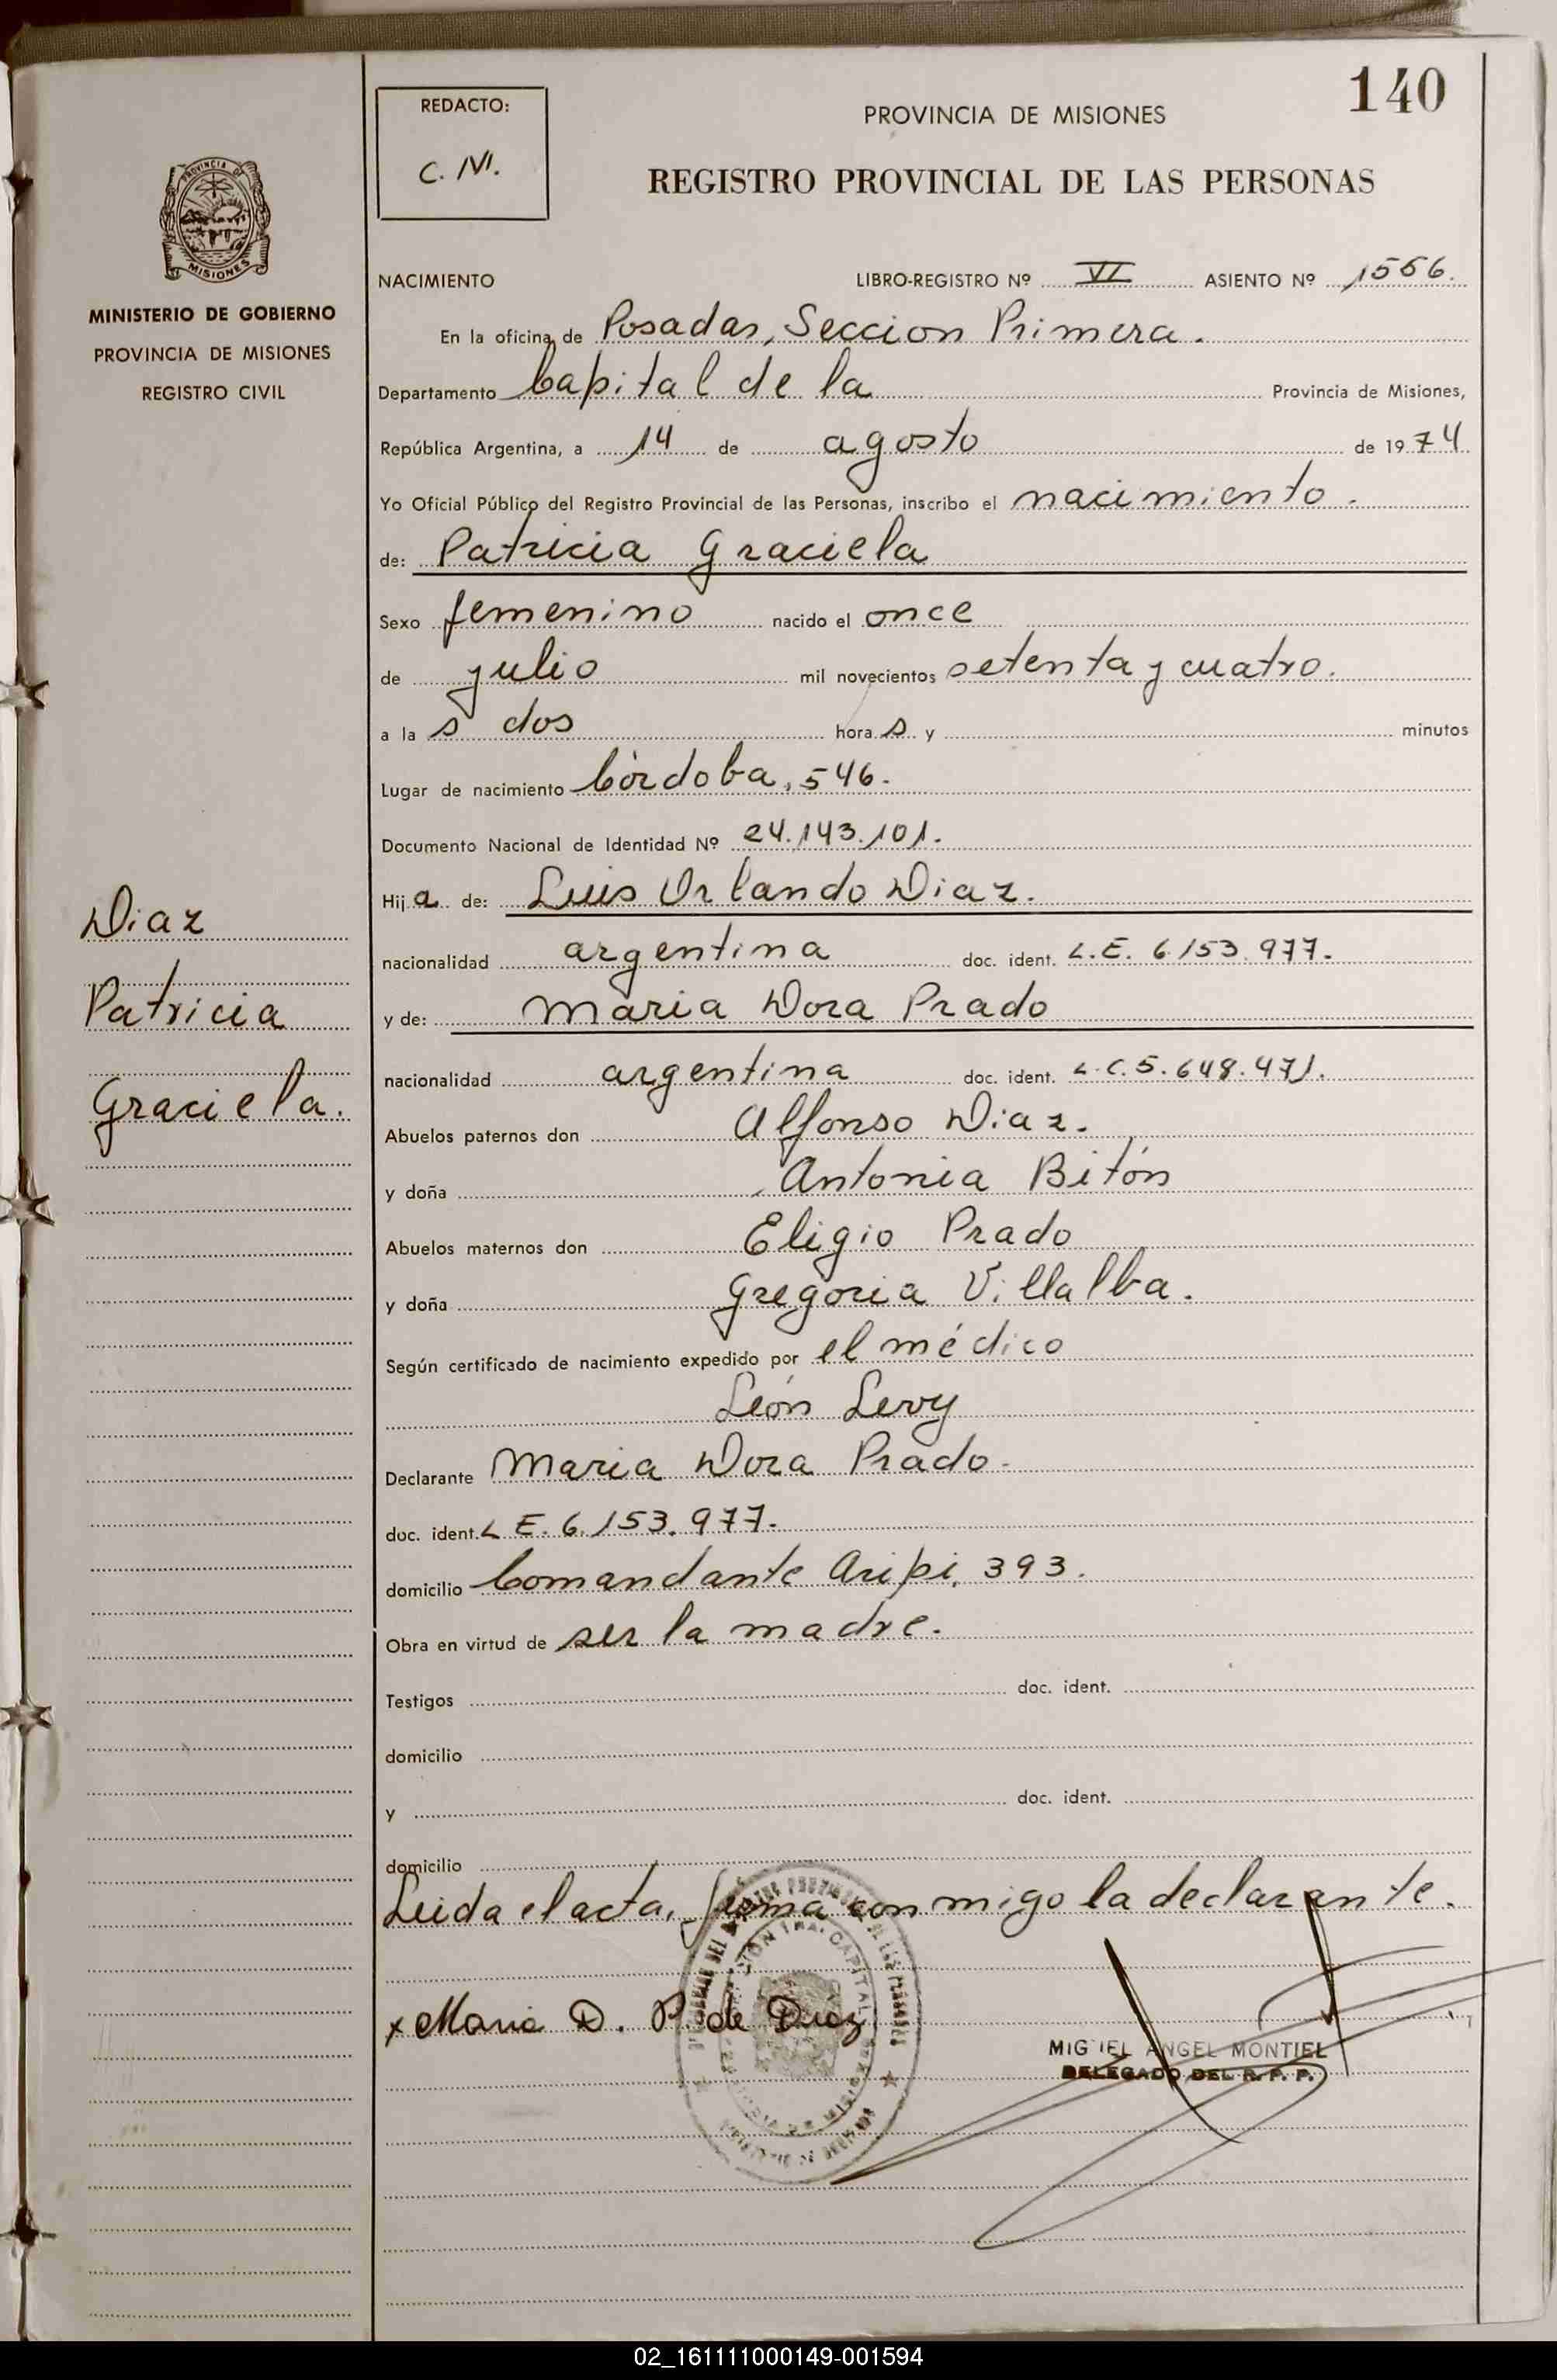 140
REDACTO:
C. M.
PROVINCIA DE MISIONES
REGISTRO PROVINCIAL DE LAS PERSONAS
PROVINCIA DE
MISIONES
MINISTERIO DE GOBIERNO
PROVINCIA DE MISIONES
REGISTRO CIVIL
NACIMIENTO LIBRO-REGISTRO Nº VI ASIENTO Nº 1556.
En la oficina de Posadas, Seccion Primera.
Departamento Capital de la Provincia de Misiones,
República Argentina, a 14 de agosto de 1974
Yo Oficial Público del Registro Provincial de las Personas, inscribo el nacimiento.
de: Patricia Graciela
Sexo femenino nacido el once
de julio mil novecientos setenta y cuatro.
a la s dos hora s y minutos
Lugar de nacimiento Córdoba, 546.
Documento Nacional de Identidad Nº 24.143.101.
Hij a de: Luis Orlando Diaz.
nacionalidad argentina doc. ident. L.E. 6.153.977.
y de: Maria Dora Prado
nacionalidad argentina doc. ident. L.C. 5.648.471.
Abuelos paternos don Alfonso Diaz.
y doña Antonia Bitón
Abuelos maternos don Eligio Prado
y doña Gregoria Villalba.
Según certificado de nacimiento expedido por el médico
León Levy
Declarante Maria Dora Prado.
doc. ident. L E. 6.153.977.
domicilio Comandante Aripi, 393.
Obra en virtud de ser la madre.
Testigos doc. ident.
domicilio
y doc. ident.
domicilio
Leida el acta, firma conmigo la declarante.
x Maria D. P. de Diaz
MIGUEL ANGEL MONTIEL
DELEGADO DEL R. P. P.
Diaz
Patricia
Graciela.
02_161111000149-001594